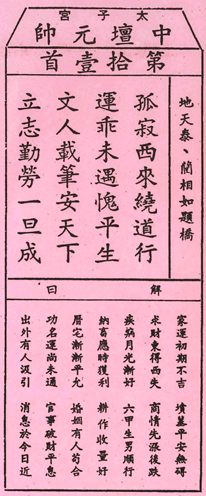 太子宮
中壇元帥
第拾壹首
地天泰、藺相如題橋
孤寂西來繞道行
運乖未遇愧平生
文人載筆安天下
立志勤勞一旦成
解曰
家運初期不吉　墳墓平安無礙
求財東得西失　商情先漲後跌
疾病月光漸好　六甲生男順行
納畜應時獲利　耕作收量好
厝宅漸漸平允　婚姻有人苟合
功名運尚未通　官事破財平息
出外有人汲引　消息於今日近